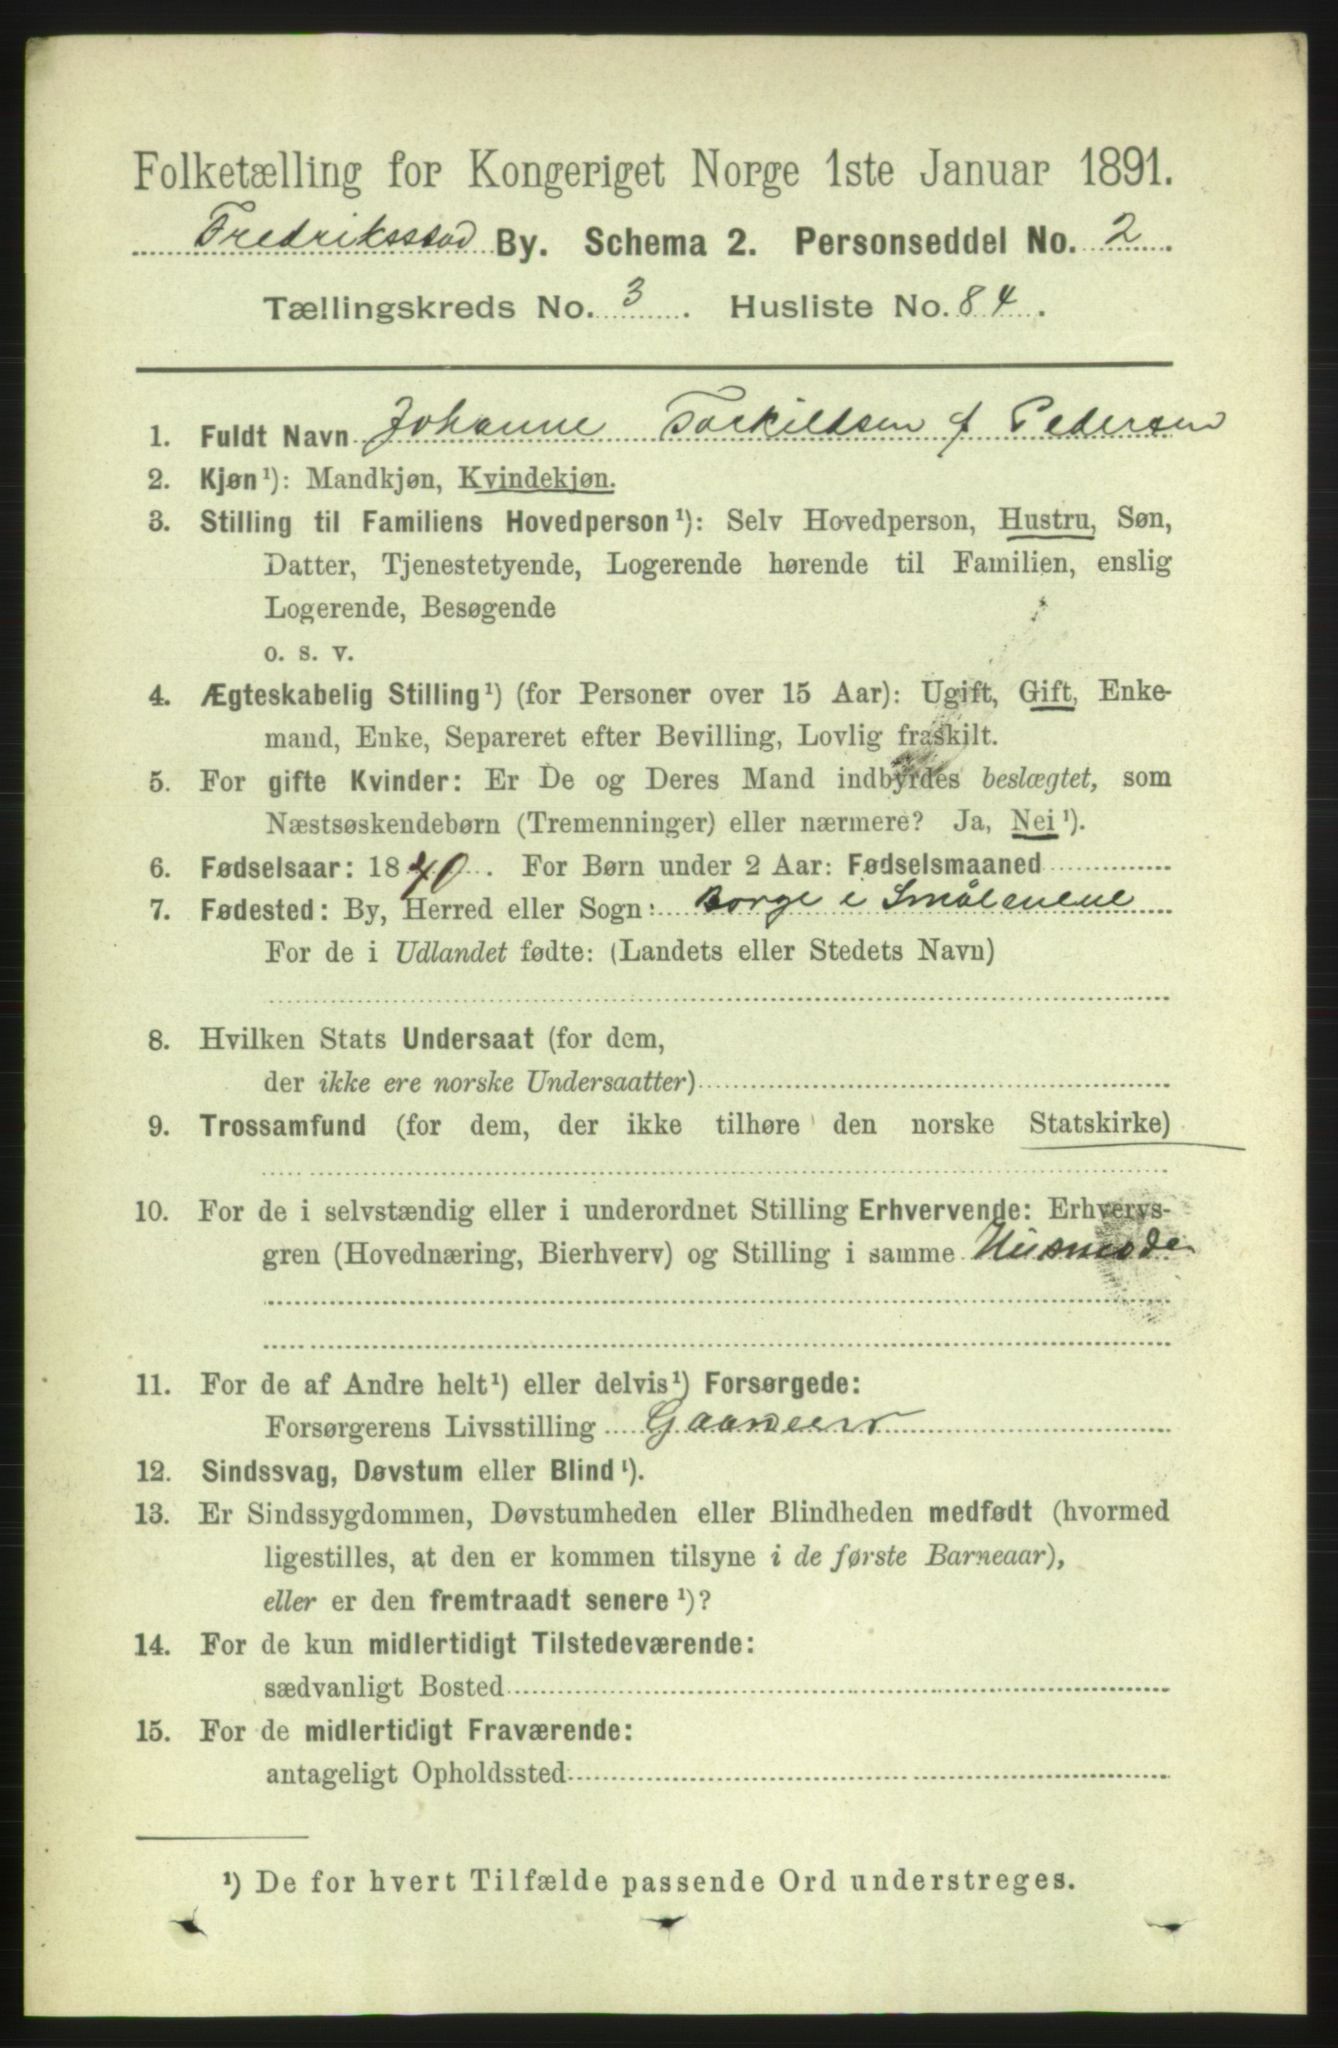 Folketælling for Kongeriget Norge 1ste Januar 1891.
Fredriksstad By. Schema 2. Personseddel No. 2.
Tællingskreds No. 3. Husliste No. 84.
1. Fuldt Navn Johanne Torkildsen f Pedersen
2. Kjøn¹): Mandkjøn, Kvindekjøn.
3. Stilling til Familiens Hovedperson¹): Selv Hovedperson, Hustru, Søn,
Datter, Tjenestetyende, Logerende hørende til Familien, enslig
Logerende, Besøgende
o. s. v.
4. Ægteskabelig Stilling¹) (for Personer over 15 Aar): Ugift, Gift, Enke-
mand, Enke, Separeret efter Bevilling, Lovlig fraskilt.
5. For gifte Kvinder: Er De og Deres Mand indbyrdes beslægtet, som
Næstsøskendebørn (Tremenninger) eller nærmere? Ja, Nei¹).
6. Fødselsaar: 1840. For Børn under 2 Aar: Fødselsmaaned
7. Fødested: By, Herred eller Sogn: Borge i Smålenene
For de i Udlandet fødte: (Landets eller Stedets Navn)
8. Hvilken Stats Undersaat (for dem,
der ikke ere norske Undersaatter)
9. Trossamfund (for dem, der ikke tilhøre den norske Statskirke)
10. For de i selvstændig eller i underordnet Stilling Erhvervende: Erhvervs-
gren (Hovednæring, Bierhverv) og Stilling i samme Husmoder
11. For de af Andre helt¹) eller delvis¹) Forsørgede:
Forsørgerens Livsstilling
12. Sindssvag, Døvstum eller Blind¹).
13. Er Sindssygdommen, Døvstumheden eller Blindheden medfødt (hvormed
ligestilles, at den er kommen tilsyne i de første Barneaar),
eller er den fremtraadt senere¹)?
14. For de kun midlertidigt Tilstedeværende:
sædvanligt Bosted
15. For de midlertidigt Fraværende:
antageligt Opholdssted
¹) De for hvert Tilfælde passende Ord understreges.